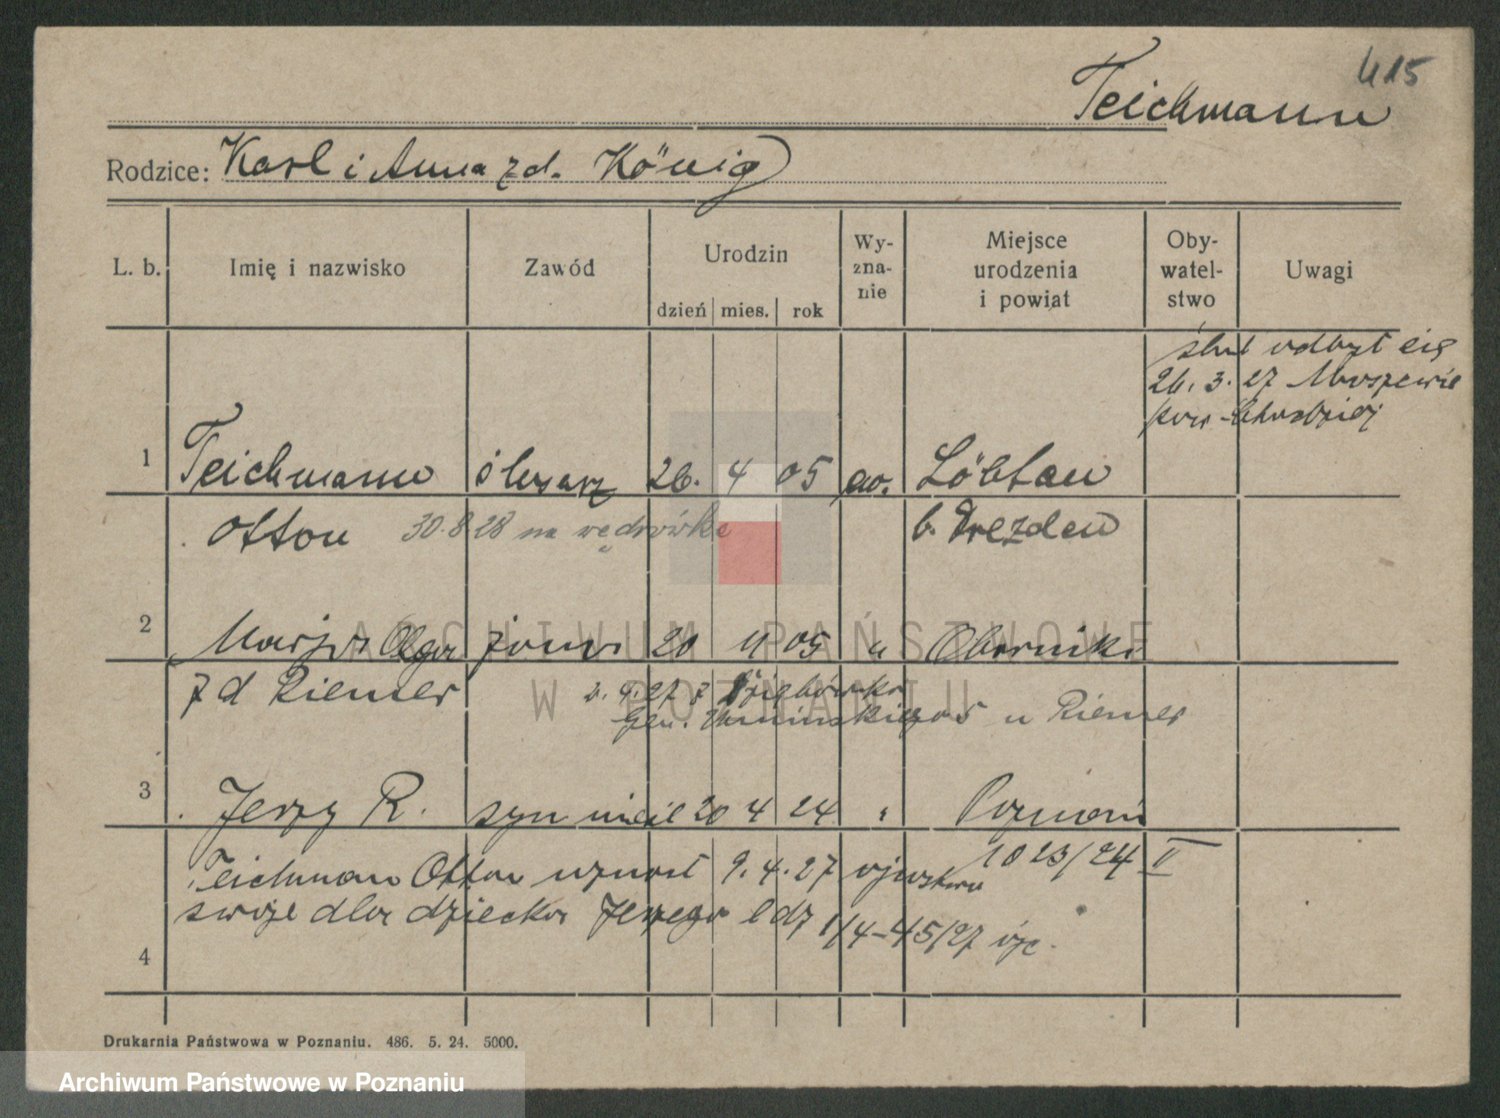 415
Teichmann
Rodzice: Karl i Anna zd. König
L. b. Imię i nazwisko Zawód Urodzin dzień mies. rok Wy-zna-nie Miejsce urodzenia i powiat Oby-watel-stwo Uwagi
ślub odbył się
26. 3. 27
pow. Chodzież
1 Teichmann ślusarz 26. 4 05 ew. Löbtau
Otton 30.8.28 na wędrówkę b. Drezden
2 Marja Olga żona 20 11 05 " Oborniki
zd Riemer 27 z
Gen. Umińskiego 5 u Riemer
3 Jerzy R. syn 20 4 24 " Poznań
1023/24 II
Teichman Otton uznał 9.4.27 ojcostwo
swoje dla dziecka Jerzego
4
Drukarnia Państwowa w Poznaniu. 486. 5. 24. 5000.
ARCHIWUM PAŃSTWOWE
W POZNANIU
Archiwum Państwowe w Poznaniu